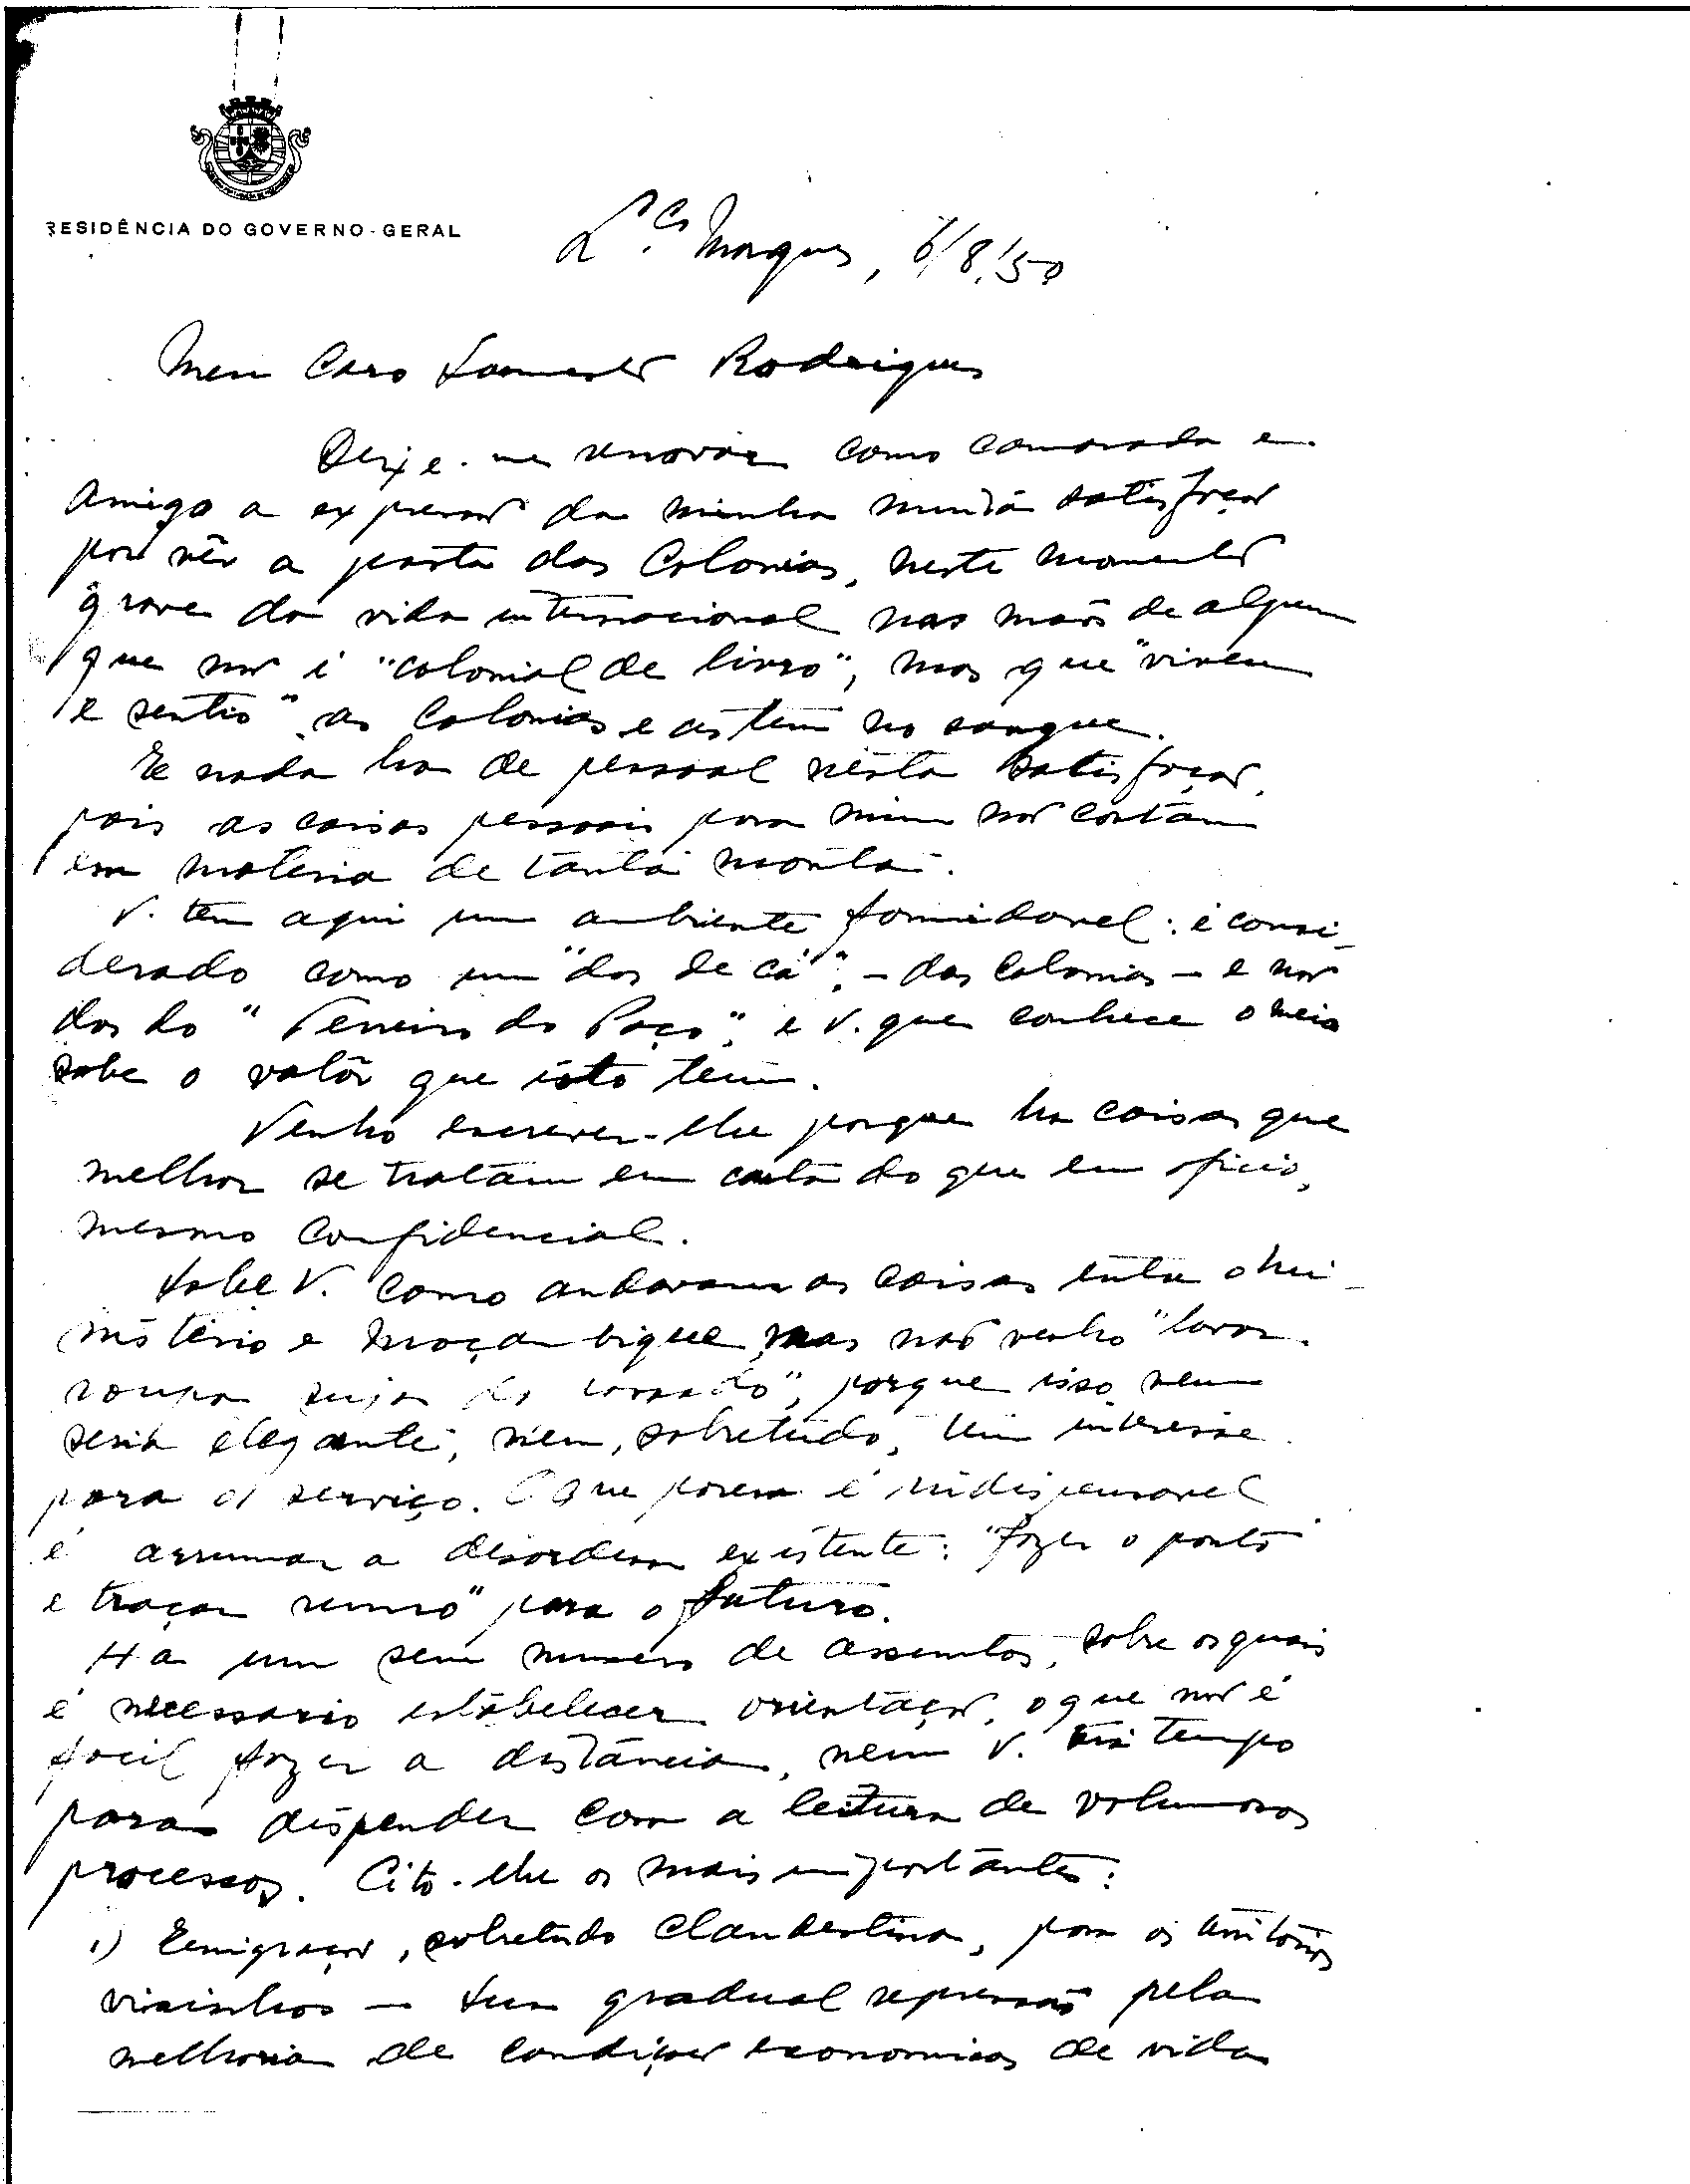 RESIDÊNCIA DO GOVERNO-GERAL
L.ço Marques, 6/8/50
Meu Caro Sarmento Rodrigues
Deixe-me renovar como camarada e
amigo a expressão da minha muita satisfação
por vêr a pasta das Colonias, neste momento
grave da vida internacional nas mãos de alguem
que não é "colonial de livro", mas que "viveu
e sentio" as Colonias e as tem no sangue.
E nada ha de pessoal nesta satisfação,
pois as coisas pessoais para mim não contam
em materia de tanta monta.
V. tem aqui um ambiente formidavel: é consi-
derado como um "dos de cá", - das Colonias - e não
dos do "Terreiro do Paço", e V. que conhece o meio
sabe o valôr que isto tem.
Venho escrever-lhe porque ha coisas que
melhor se tratam em carta do que em oficio,
mesmo confidencial.
Sabe V. como andavam as coisas entre o Mi-
nistério e Moçambique, mas não venho "lavar
roupa suja do passado", porque isso nem
seria elegante, nem, sobretudo, tem interesse
para o serviço. O que porem é indispensavel
é arrumar a desordem existente: "fazer o ponto
e traçar rumo" para o futuro.
Ha um sem numero de assuntos, sobre os quais
é necessario estabelecer orientação, o que não é
facil fazer a distância, nem V. tem tempo
para dispender com a leitura de volumosos
processos. Cito-lhe os mais importantes:
1) Emigração, sobretudo clandestina, para os territórios
visinhos - sua gradual repressão pela
melhoria de condições economicas de vida